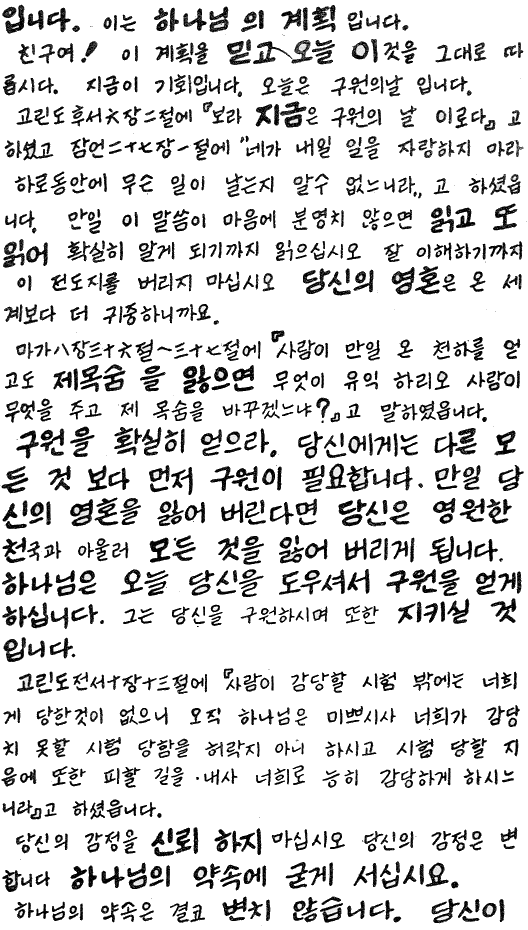 입니다. 이는 하나님의 계획입니다.
친구여! 이 계획을 믿고 오늘 이것을 그대로 따
릅시다. 지금이 기회입니다. 오늘은 구원의날 입니다.
고린도후서六장二절에 『보라 지금은 구원의 날 이로다』고
하였고 잠언二十七장一절에 "네가 내일 일을 자랑하지 마라
하로동안에 무슨 일이 날는지 알수 없느니라„ 고 하셨읍
니다. 만일 이 말씀이 마음에 분명치 않으면 읽고 또
읽어 확실히 알게 되기까지 읽으십시오 잘 이해하기까지
이 전도지를 버리지 마십시오 당신의 영혼은 온 세
계보다 더 귀중하니까요.
마가八장三十六절~三十七절에 『사람이 만일 온 천하를 얻
고도 제목숨을 잃으면 무엇이 유익 하리오 사람이
무엇을 주고 제 목숨을 바꾸겠느냐?』고 말하였읍니다.
구원을 확실히 얻으라. 당신에게는 다른 모
든 것 보다 먼저 구원이 필요합니다. 만일 당
신의 영혼을 잃어 버린다면 당신은 영원한
천국과 아울러 모든 것을 잃어 버리게 됩니다.
하나님은 오늘 당신을 도우셔서 구원을 얻게
하십니다. 그는 당신을 구원하시며 또한 지키실 것
입니다.
고린도전서十장十三절에 『사람이 감당할 시험 밖에는 너희
게 당한것이 없으니 오직 하나님은 미쁘시사 너희가 감당
치 못할 시험 당함을 허락지 아니 하시고 시험 당할 지
음에 또한 피할 길을 내사 너희로 능히 감당하게 하시느
니라』고 하셨읍니다.
당신의 감정을 신뢰 하지 마십시오 당신의 감정은 변
합니다 하나님의 약속에 굳게 서십시요.
하나님의 약속은 결코 변치 않습니다. 당신이